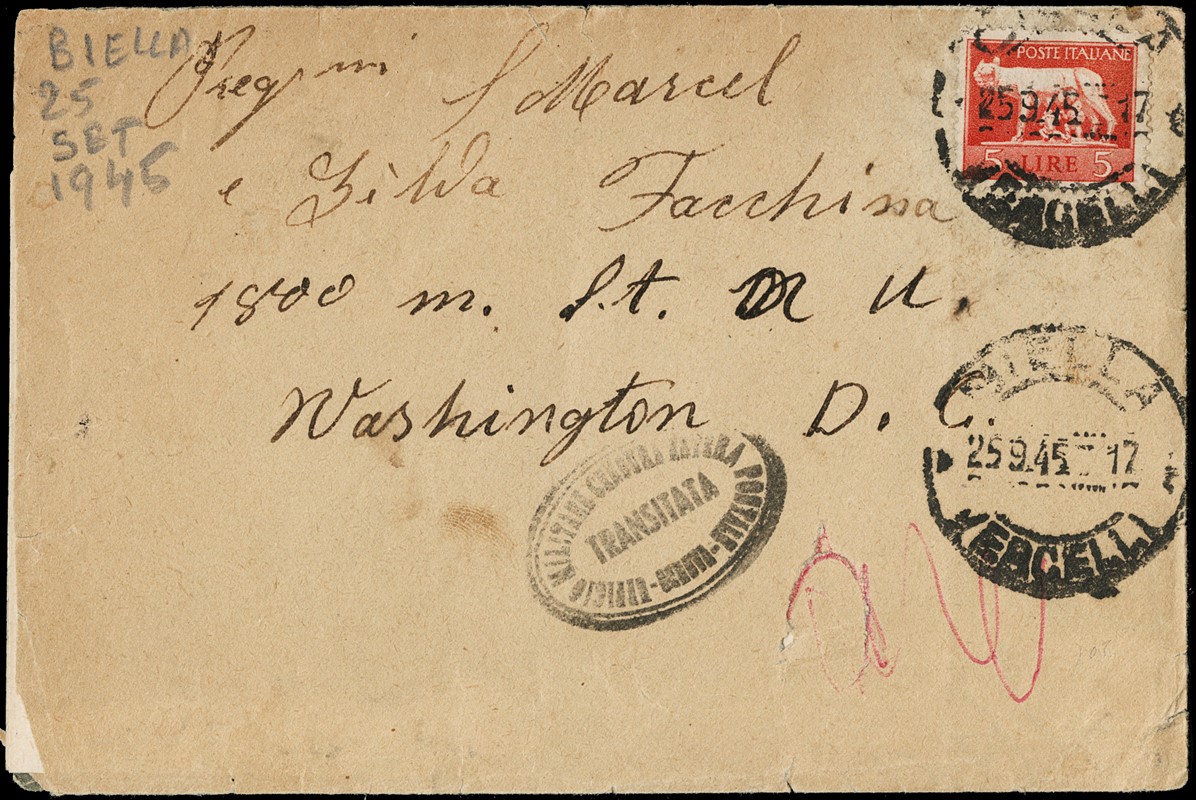 BIELLA
25
SET
1945
Preg mi S Marcel
e Zilda Facchina
1800 m. St. N U.
Washington D. C.
POSTE ITALIANE
5 LIRE 5
25 9.45 17
VERCELLI
BIELLA
25 9.45 17
VERCELLI
UFFICIO MILITARE CENSURA ESTERA POSTALE
TRANSITATA